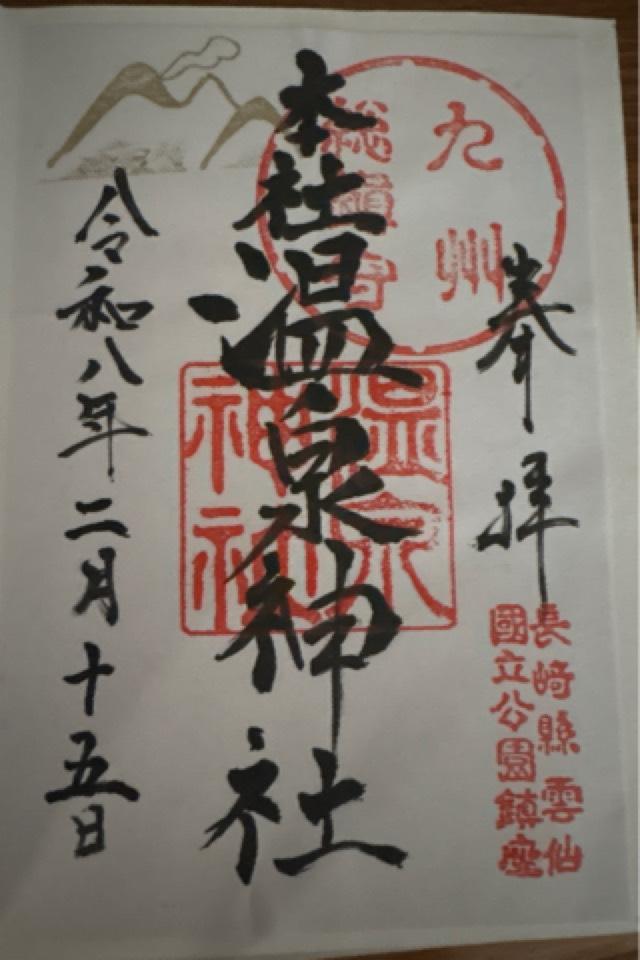 奉拝
長崎縣雲仙
國立公園鎮座
九州
総鎮守
本社温泉神社
温泉
神社
令和八年二月十五日